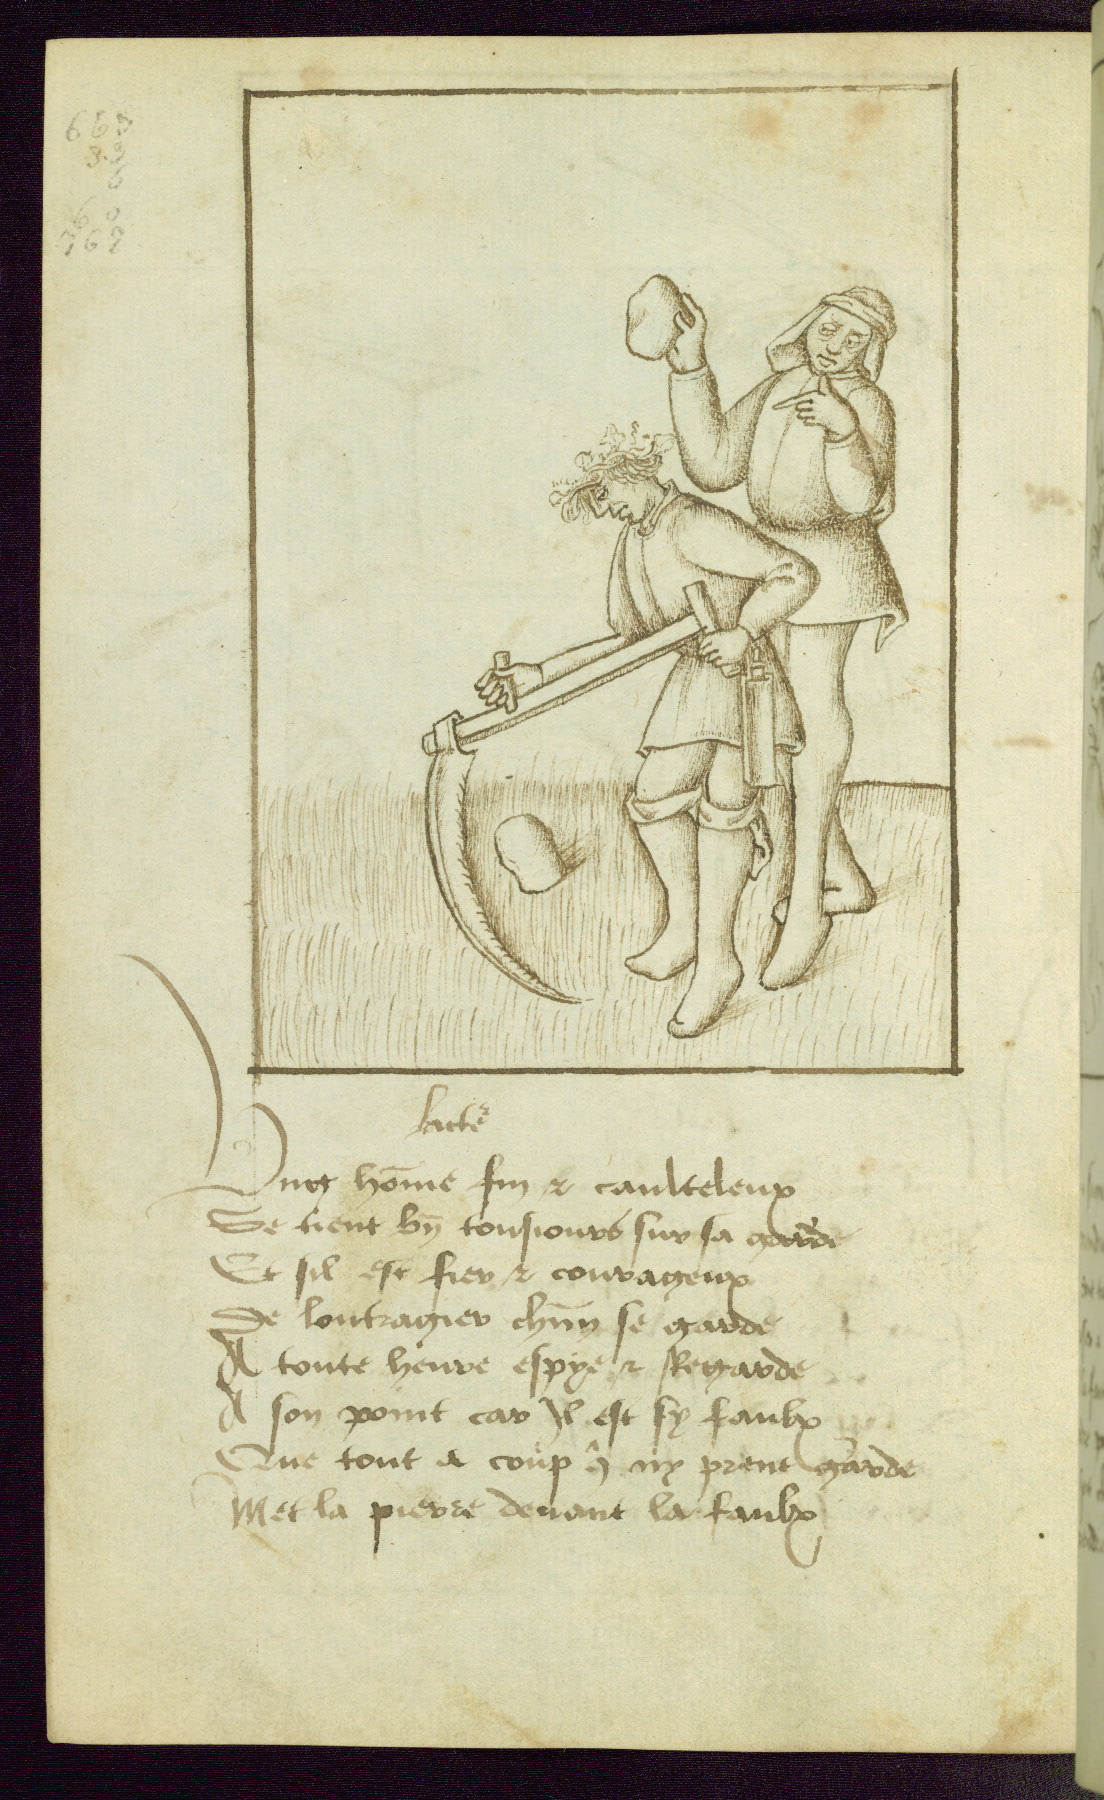 663
33
6
6 0
762
lacte᷑
Ung hōme fin & caulteleux
Se tient bn̄ tousiours sur sa garde
Et sil est fier & courageux
De loutragier chūn se garde
A toute heure espye & Regarde
A son point car Il est sy faulx
Que tout a coup q̄ ny prent garde
Met la pierre deuant la faulx